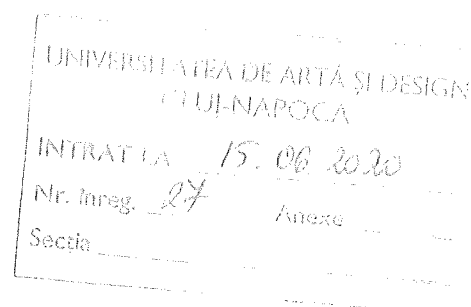 UNIVERSITATEA DE ARTĂ ȘI DESIGN
CLUJ-NAPOCA
INTRAT LA 15. 06 2020
Nr. înreg. 27 Anexe
Secția